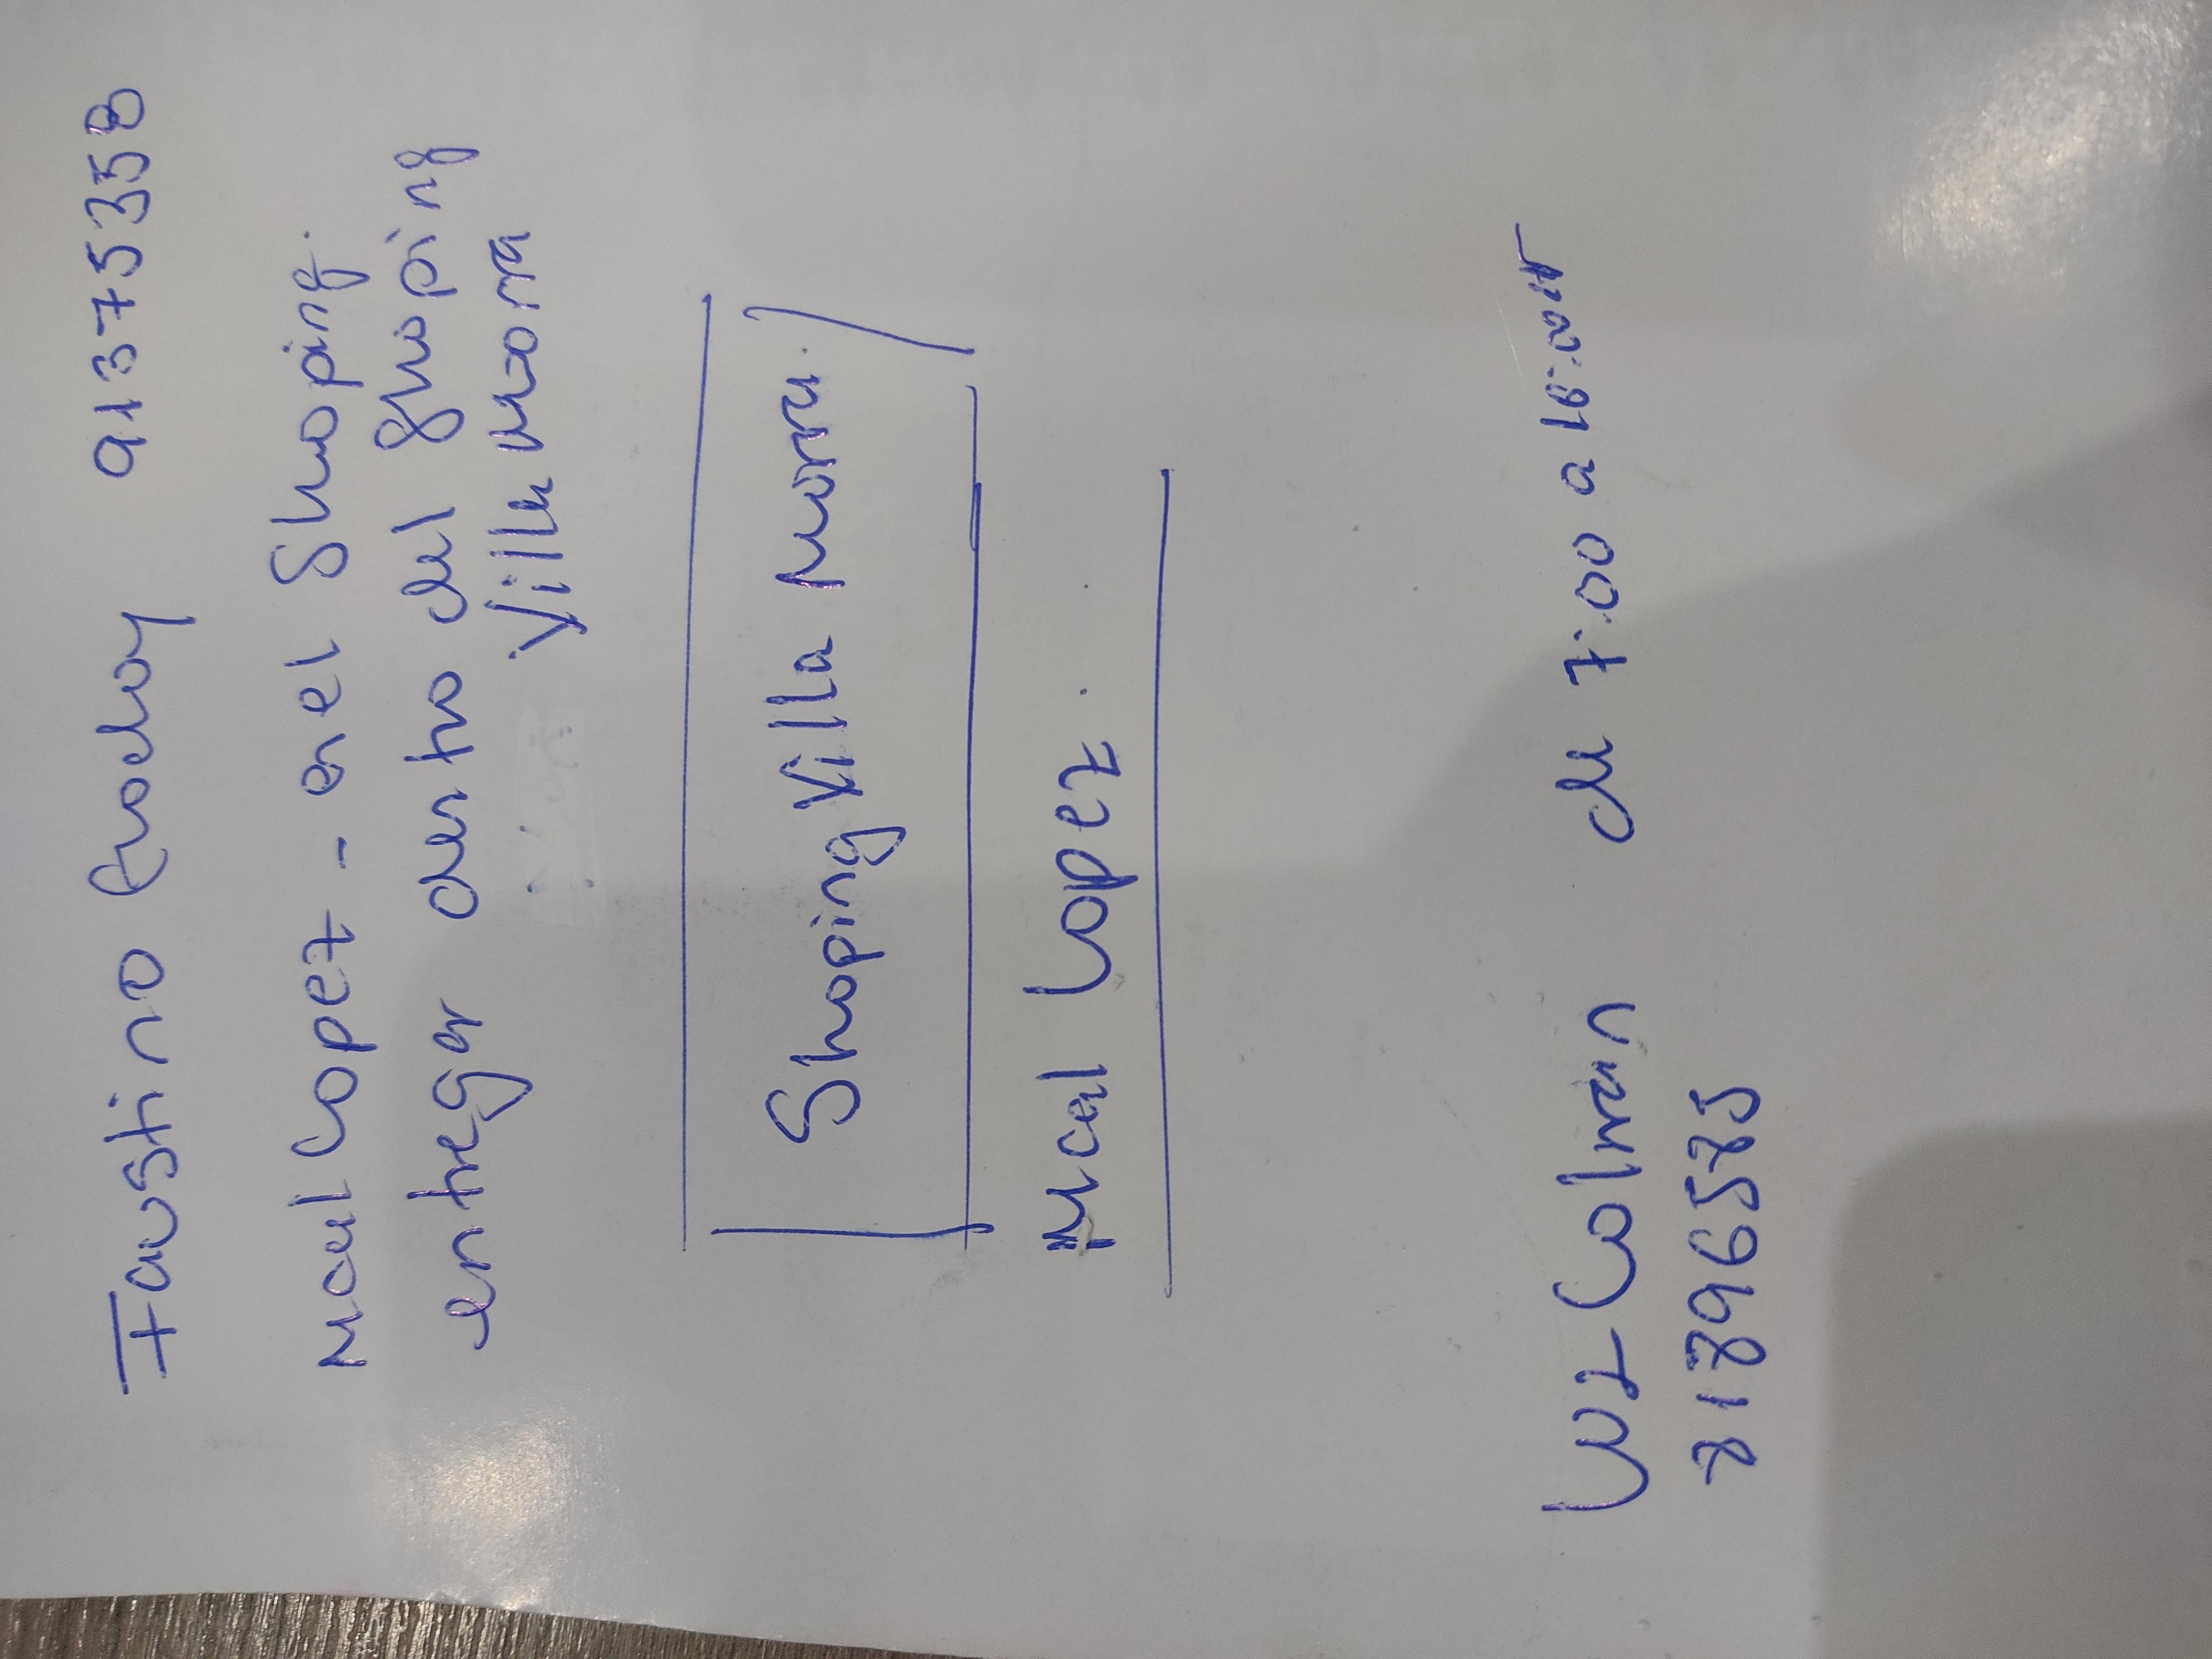 Faustino Godoy 91375358
Mcal Lopez - enel Shoping.
entregar dentro del Shoping
Villa Morra
Shoping Villa Morra
Mcal Lopez.
Luz Colman de 7:00 a 18:00